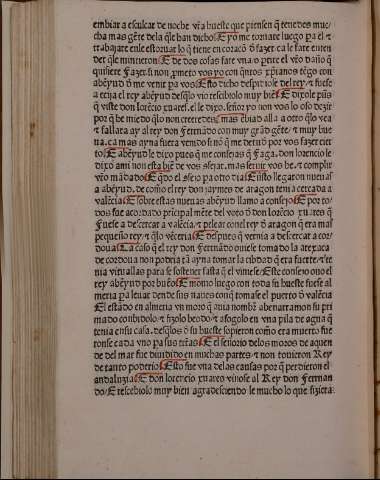 embiar a esculcar de noche vr̃a hueste que piensen q̃ tenedes mu
cha mas gẽte dela q̃le han dicho E yo me tornate luego pa el ⁊
trabajare enle estoruar lo q̃ tiene en coraçõ ð fazer. ca le fare enten
der q̃le mintieron E de dos cosas fare vna o prite el vr̃o daño q̃
quisiere fazer. si nõ prometo vos yo con q̃ntos xp̃ianos tẽgo con
abeyuð ð me venir pa vos Esto dicho despidiole del rey ⁊ fuese
a ecija el rey abeyuð desq̃lo vio recibiolo muy biẽ E dixole pues
q̃ viste don lorẽcio xuares. el le dixo. señor yo non vos lo oso dezir
por q̃ he miedo q̃lo non creeredes mas ebiad alla a otro q̃lo vea
⁊ fallara ay al rey don Fernãdo con muy grãd gẽte ⁊ muy bue
na. ca mas ayna fuera vendo si nõ que detuuo por vos fazer enten
Abeyuð le dixo pues q̃ me consejas q̃ faga. don lorencio le
dixo ami non esta biẽ de vos cõsejar. mas seruir vos he ⁊ complir
vr̃o mãdado E qdo el cõsejo pa otro dia Enesto llegaron nueuas
a abeyuð. de como el rey don jaymes de aragon tenia cercada a
valẽcia E sobre estas nueuas abeyuð llamo a consejo E por to
dos fue acordado pr̃icipal mẽte del voto ð don lorẽcio xuares q̃
Fuese a descercar a valẽcia ⁊ pelear conel rey ð aragon q̃ era mas
pequeño rey ⁊ q̃lo vẽceria E despues q̃ vernia a descercar a cor
doua Ca caso q̃ el rey don Fernãdo ouiese tomado la arexaca
de cordoua non podria tã ayna tomar la cibdad q̃ era fuerte ⁊ te
nia vituallas para se sostener fasta q̃ el viniese Este consejo ouo el
rey abeyuð por bueõ E mouio luego con toda su hueste fuese al
meria pa leuar dende sus naues conq̃ tomase el puerto ð valẽcia
El estado en almeria vn moro q̃ auia nombr̃ abenarramon su pri
mado conbidolo ⁊ fizolo beodo ⁊ afogolo en vna pila de agua q̃
tenia en su casa. desq̃los ð su hueste sopieron como era muerto fue
ronse cada vno pa sus tr̃ras E el señorio delos moros de aquen
de del mar fue diuidido en muchas partes ⁊ non touieron Rey
de tanto poderio Esto fue vna de las causas por q̃ perdieron el
andaluzia E don lorencio xuares vinose al Rey don Fernan
do E rescebiolo muy bien agradesciendo le mucho lo que fiziera